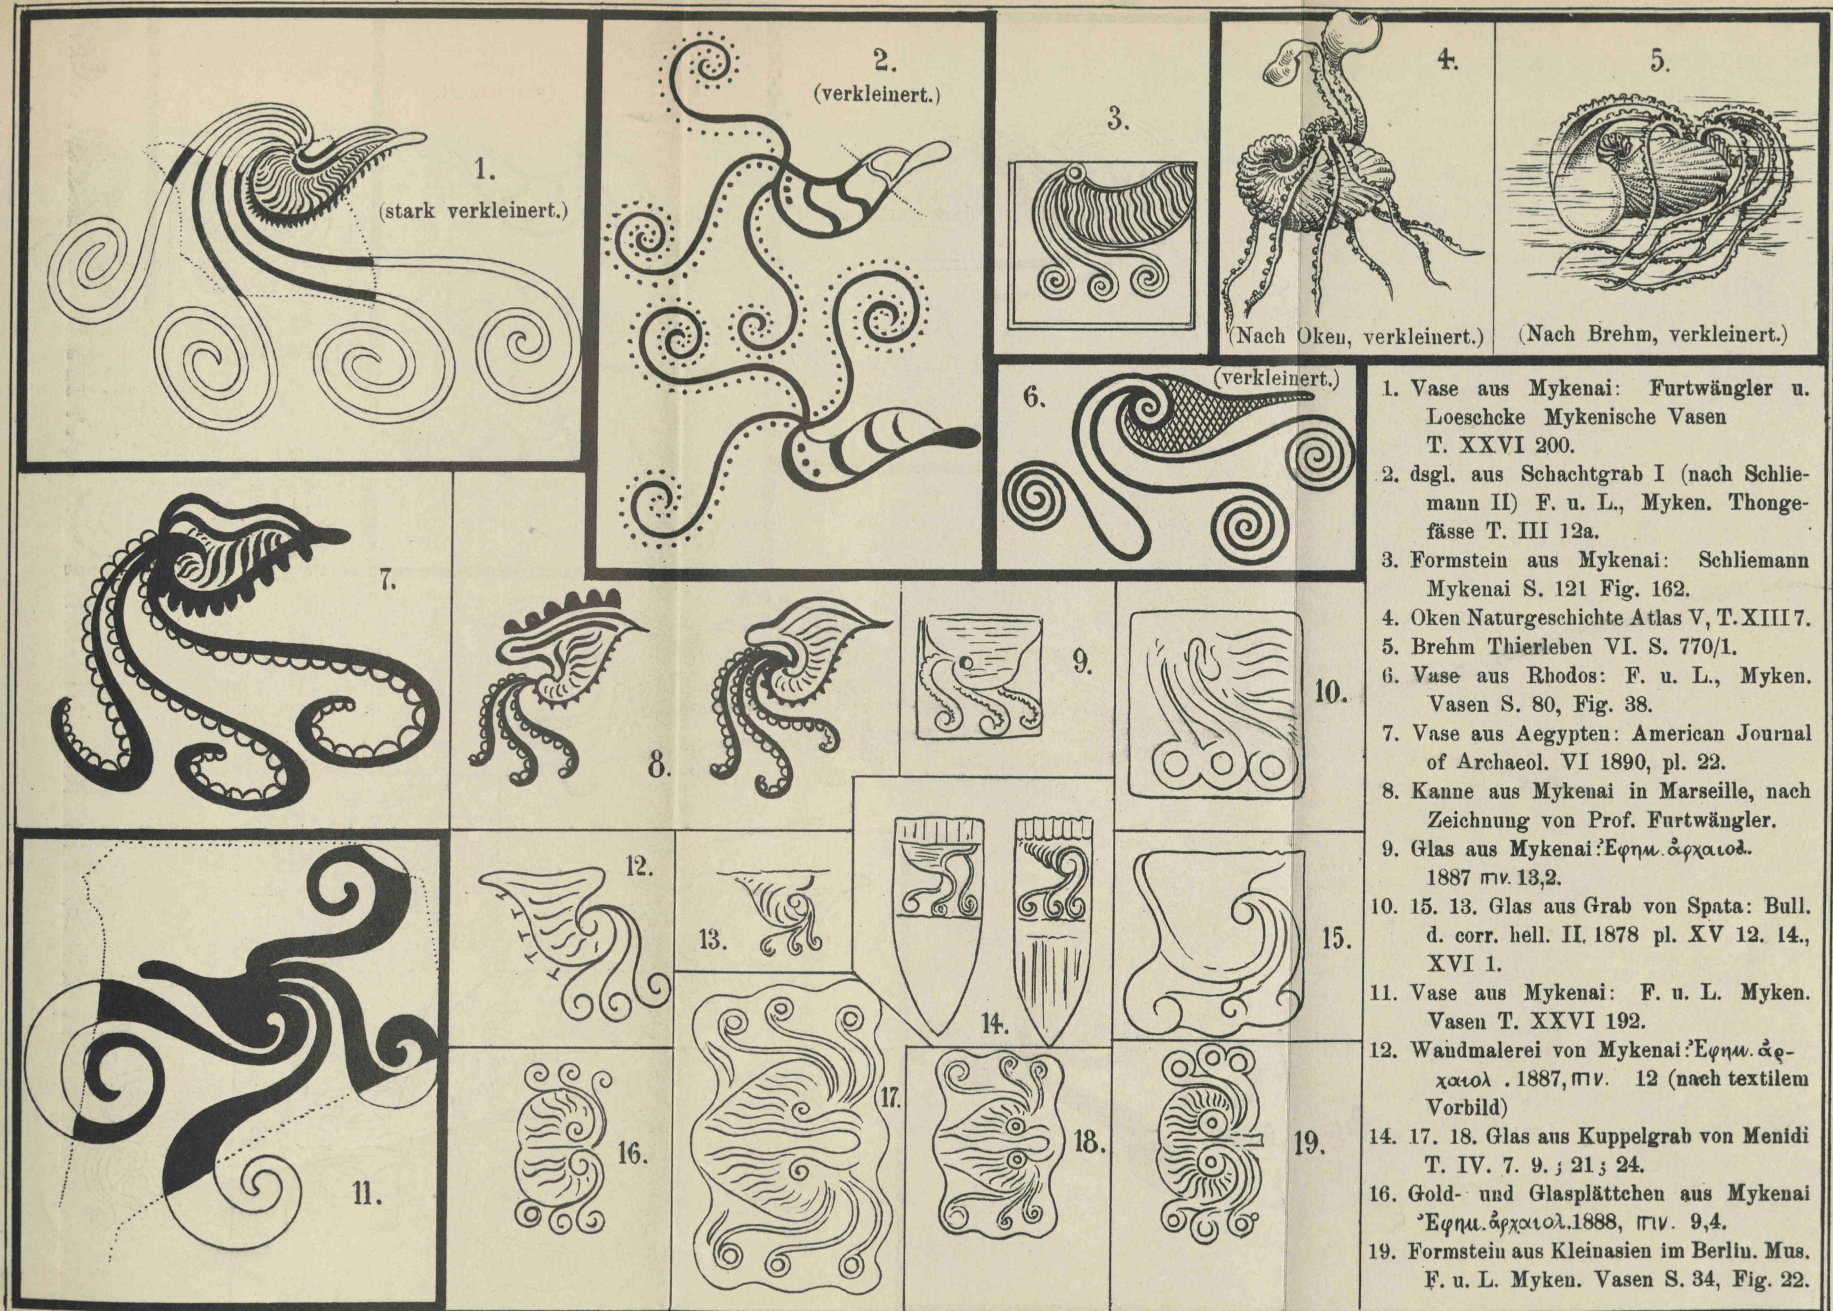 1.
(stark verkleinert.)
2.
(verkleinert.)
3.
4.
(Nach Oken, verkleinert.)
5.
(Nach Brehm, verkleinert.)
6.
(verkleinert.)
7.
8.
9.
10.
11.
12.
13.
14.
15.
16.
17.
18.
19.
1. Vase aus Mykenai: Furtwängler u.
Loeschcke Mykenische Vasen
T. XXVI 200.
2. dsgl. aus Schachtgrab I (nach Schlie-
mann II) F. u. L., Myken. Thonge-
fässe T. III 12a.
3. Formstein aus Mykenai: Schliemann
Mykenai S. 121 Fig. 162.
4. Oken Naturgeschichte Atlas V, T. XIII 7.
5. Brehm Thierleben VI. S. 770/1.
6. Vase aus Rhodos: F. u. L., Myken.
Vasen S. 80, Fig. 38.
7. Vase aus Aegypten: American Journal
of Archaeol. VI 1890, pl. 22.
8. Kanne aus Mykenai in Marseille, nach
Zeichnung von Prof. Furtwängler.
9. Glas aus Mykenai: Ἐφημ. ἀρχαιολ.
1887 πιν. 13,2.
10. 15. 13. Glas aus Grab von Spata: Bull.
d. corr. hell. II. 1878 pl. XV 12. 14.,
XVI 1.
11. Vase aus Mykenai: F. u. L. Myken.
Vasen T. XXVI 192.
12. Wandmalerei von Mykenai: Ἐφημ. ἀρ-
χαιολ . 1887, πιν. 12 (nach textilem
Vorbild)
14. 17. 18. Glas aus Kuppelgrab von Menidi
T. IV. 7. 9. ; 21 ; 24.
16. Gold- und Glasplättchen aus Mykenai
Ἐφημ. ἀρχαιολ. 1888, πιν. 9,4.
19. Formstein aus Kleinasien im Berlin. Mus.
F. u. L. Myken. Vasen S. 34, Fig. 22.